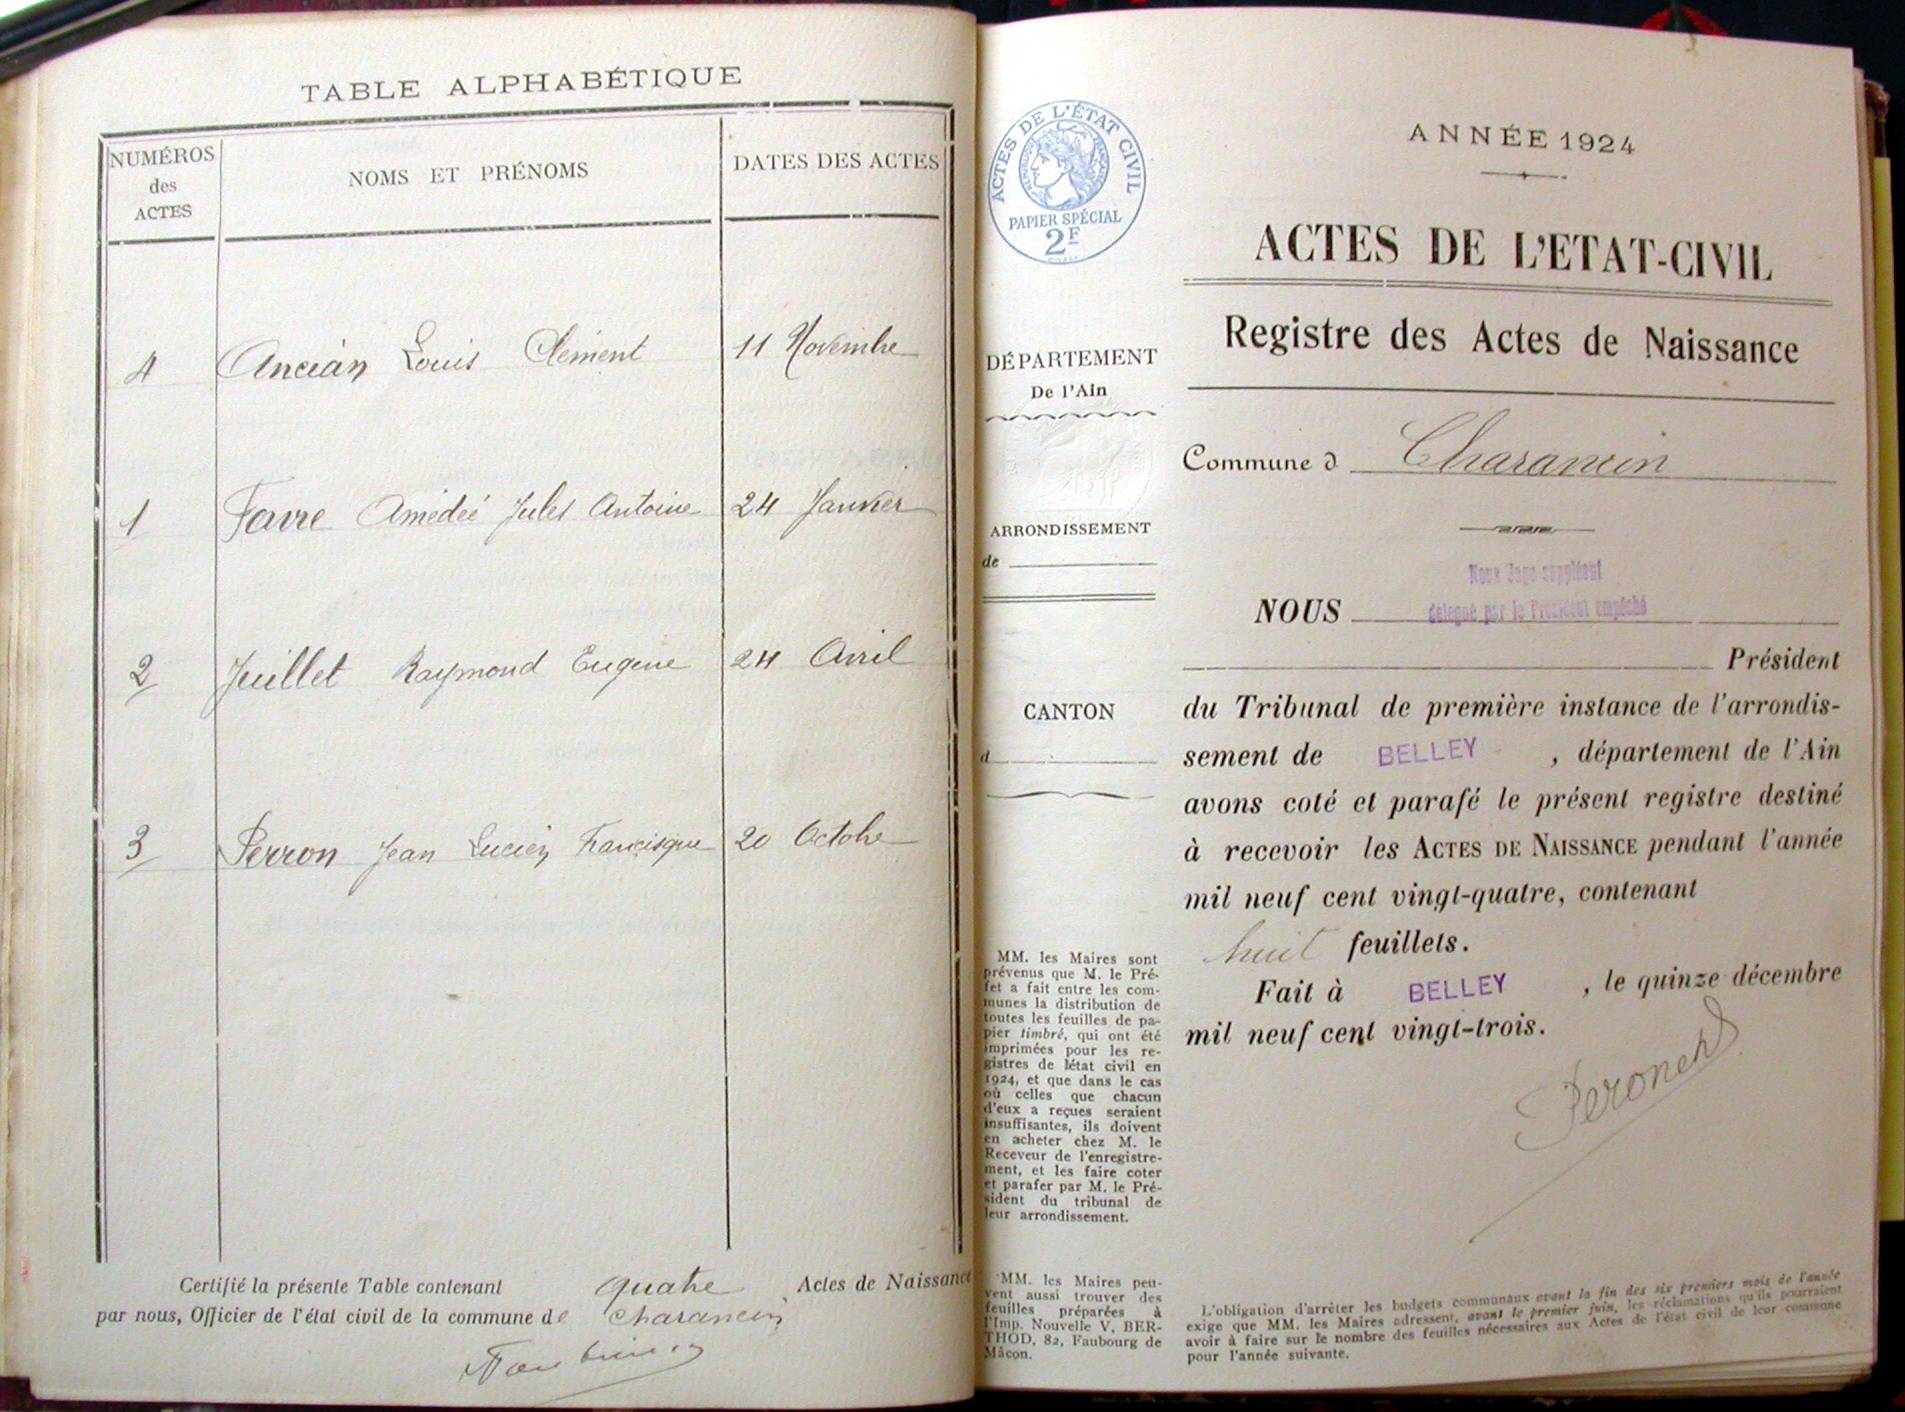 TABLE ALPHABÉTIQUE
NUMÉROS
des
ACTES
NOMS ET PRÉNOMS
DATES DES ACTES
4 Ancian Louis Clément 11 Novembre
1 Favre Amédée Jules Antoine 24 Janvier
2 Juillet Raymond Eugène 24 Avril
3 Perron Jean Lucien Francisque 20 Octobre
Certifié la présente Table contenant quatre Actes de Naissance
par nous, Officier de l'état civil de la commune de Charancin
ACTES DE L'ÉTAT CIVIL
PAPIER SPÉCIAL
2F
DÉPARTEMENT
De l'Ain
ARRONDISSEMENT
de
CANTON
d
MM. les Maires sont
prévenus que M. le Pré-
fet a fait entre les com-
munes la distribution de
toutes les feuilles de pa-
pier timbré, qui ont été
imprimées pour les re-
gistres de l'état civil en
1924, et que dans le cas
où celles que chacun
d'eux a reçues seraient
insuffisantes, ils doivent
en acheter chez M. le
Receveur de l'enregistre-
ment, et les faire coter
et parafer par M. le Pré-
sident du tribunal de
leur arrondissement.
MM. les Maires peu-
vent aussi trouver des
feuilles préparées à
l'Imp. Nouvelle V. BER-
THOD, 82, Faubourg de
Mâcon.
ANNÉE 1924
ACTES DE L'ETAT-CIVIL
Registre des Actes de Naissance
Commune d Charancin
Nous Juge suppléant
NOUS délégué par le Président empêché
Président
du Tribunal de première instance de l'arrondis-
sement de BELLEY, département de l'Ain
avons coté et parafé le présent registre destiné
à recevoir les ACTES DE NAISSANCE pendant l'année
mil neuf cent vingt-quatre, contenant
huit feuillets.
Fait à BELLEY, le quinze décembre
mil neuf cent vingt-trois.
L'obligation d'arrêter les budgets communaux avant la fin des six premiers mois de l'année
exige que MM. les Maires adressent, avant le premier juin, les réclamations qu'ils pourraient
avoir à faire sur le nombre des feuilles nécessaires aux Actes de l'état civil de leur commune
pour l'année suivante.